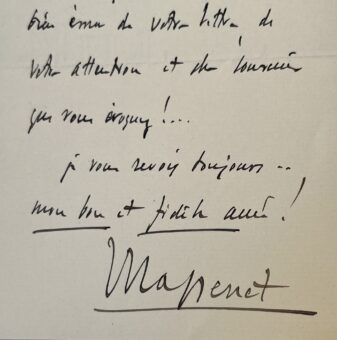 bien ému de votre lettre de
votre attention et des souvenirs
que vous évoquez !...
je vous revois toujours ..
mon bon et fidèle ami !
Massenet